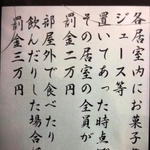 各居室内にお菓子
ジュース等
置いてあった時点
その居室の全員が
罰金二万円
部屋外で食べたり
飲んだりした場合
罰金三万円